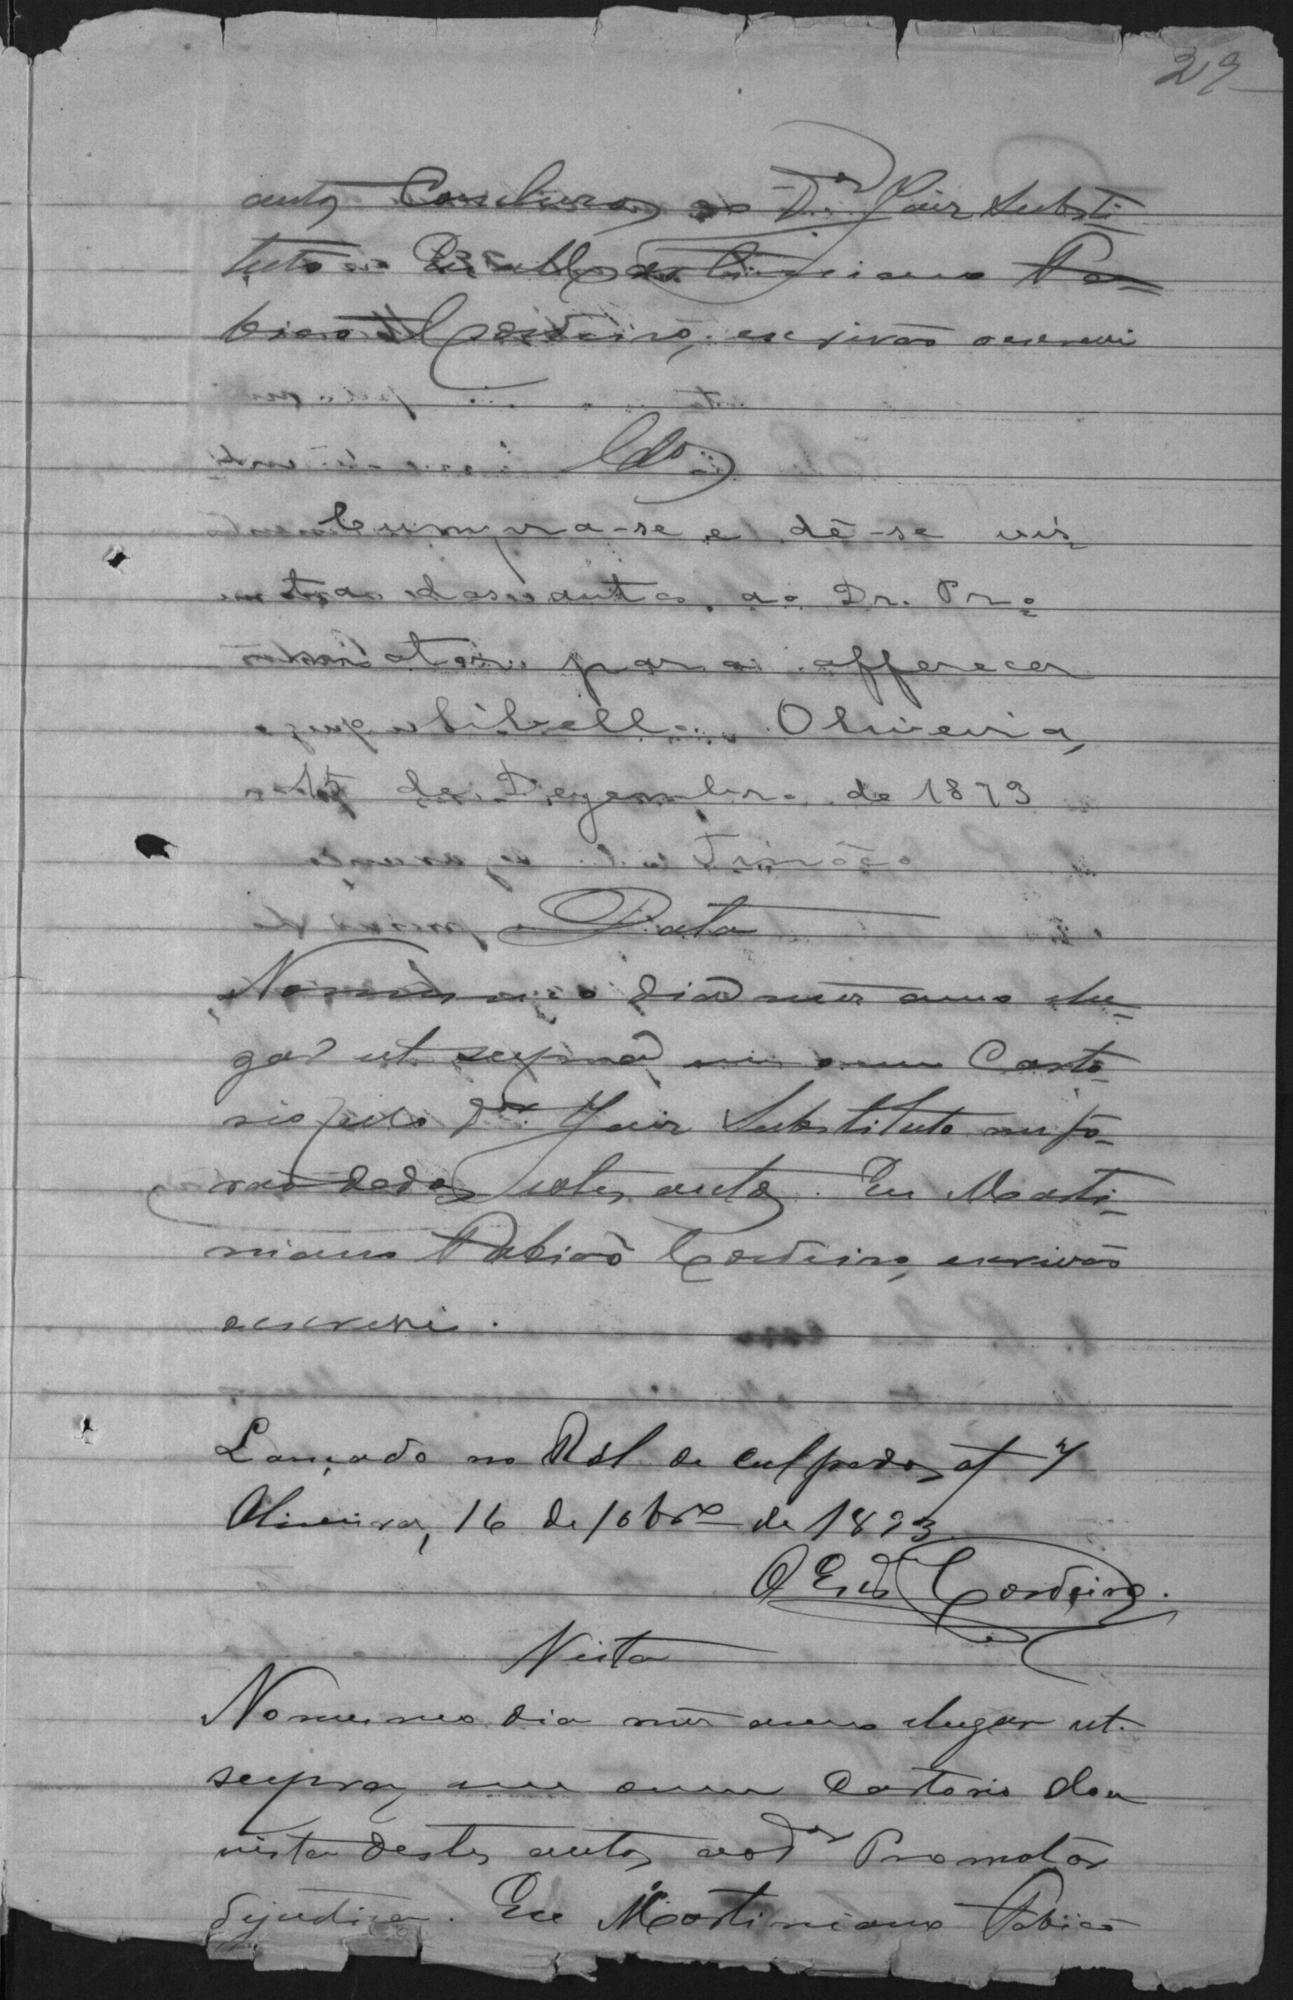 29
autos Conclusos ao Dr. Juiz Substi-
tuto. Eu Martiniano Fa-
biano Cordeiro, escrivão o escrevi
Cls
Cumpra-se e dê-se vis-
ta dos autos ao Dr. Pro-
motor para offerecer
o libello. Oliveira,
15 de Dezembro de 1893
Data
No mesmo dia mez anno e lu-
gar ut supra em o meu Carto-
rio pelo Dr. Juiz Substituto me fo-
rão dados estes autos. Eu Marti-
niano Fabião Cordeiro, escrivão
o escrevi.
Lançado no Rol de culpados af 7
Oliveira, 16 de 10brº de 1893
O Escm Cordeiro.
Vista
No mesmo dia mez anno e lugar ut
supra, em o meu Cartorio dou
vista destes autos ao Dr Promotor
de justiça. Eu Martiniano Fabião